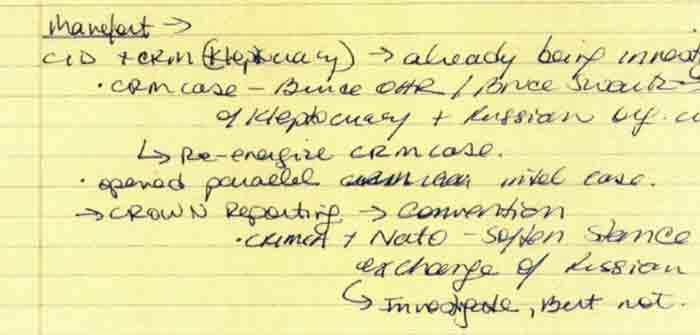 Manafort →
CID + CRM (Kleptocracy) → already being investi
· CRM case – Bruce OHR / Bruce Swartz
of Kleptocracy + Russian org. c
↳ Re-energize CRM case.
· opened parallel intel case.
→ CROWN Reporting → Convention
· Crimea + Nato – Soften Stance
exchange of Russian
↳ Investigate, But not.